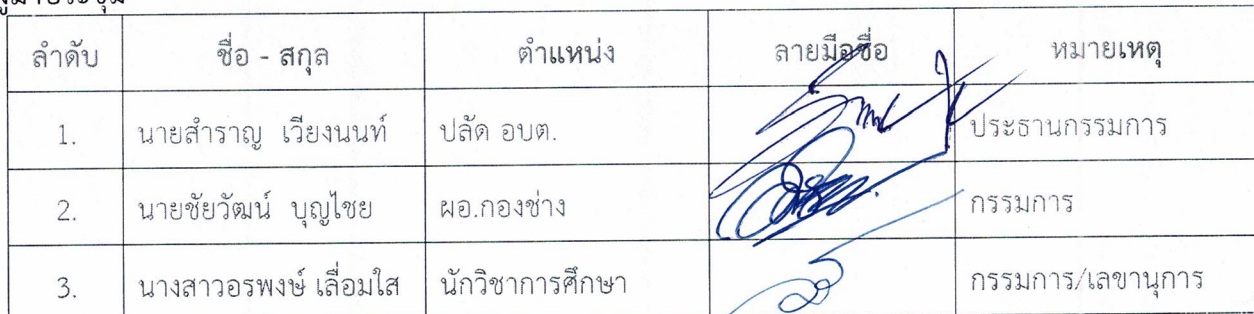 ผู้มาประชุม
ลำดับ ชื่อ - สกุล ตำแหน่ง ลายมือชื่อ หมายเหตุ
1. นายสำราญ เวียงนนท์ ปลัด อบต. ประธานกรรมการ
2. นายชัยวัฒน์ บุญไชย ผอ.กองช่าง กรรมการ
3. นางสาวอรพงษ์ เลื่อมใส นักวิชาการศึกษา กรรมการ/เลขานุการ